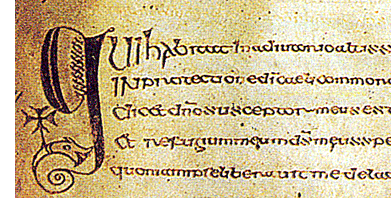 Qui habitat in adiutorio altiss
IN protectione di caeli commora
Dicet dno susceptor meus es t
et refugium meum ds meus spe
quoniam ipse liberauit me de la